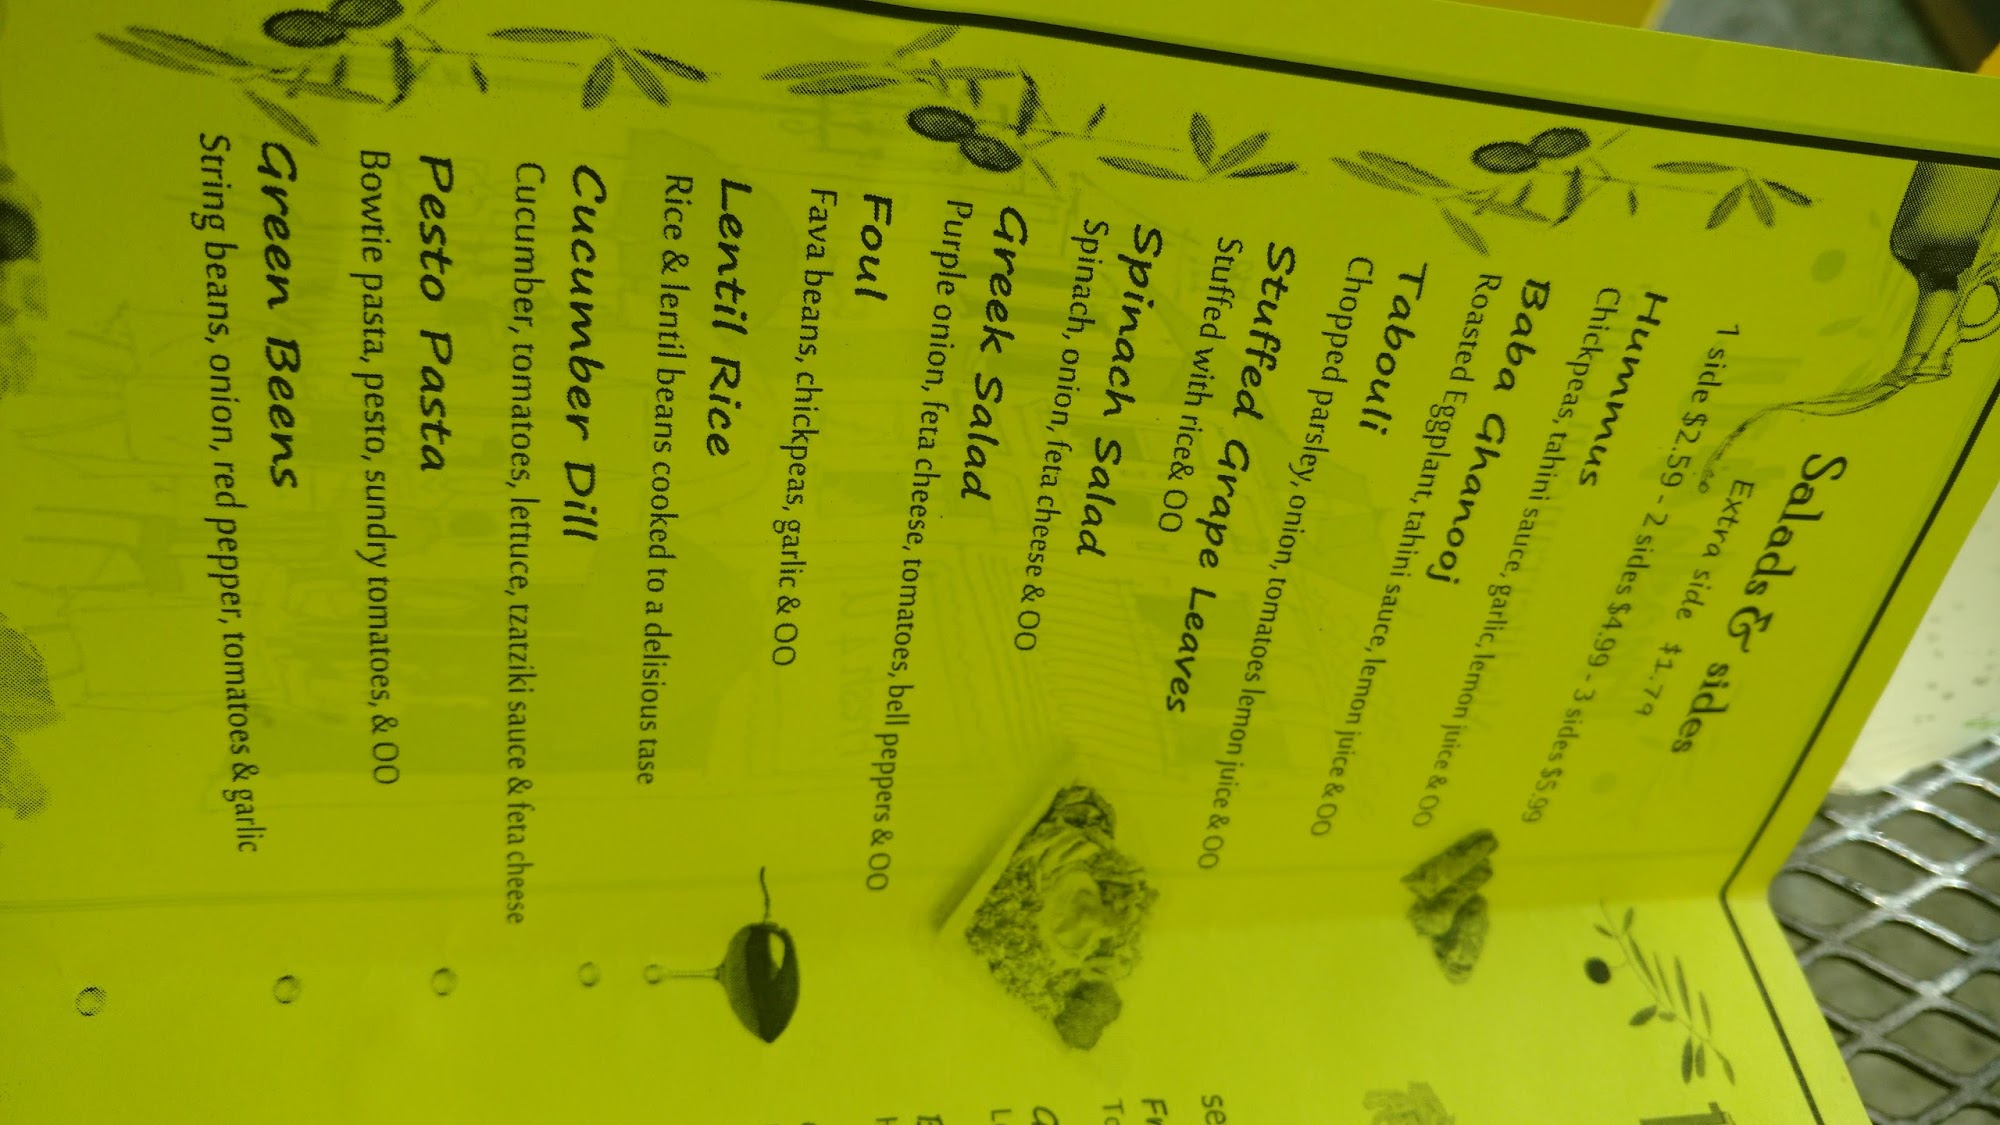 Salads & sides
Extra side $1.79
1 side $2.59 - 2 sides $4.99 - 3 sides $5.99
Hummus
Chickpeas, tahini sauce, garlic, lemon juice & OO
Baba Ghanooj
Roasted Eggplant, tahini sauce, lemon juice & OO
Tabouli
Chopped parsley, onion, tomatoes lemon juice & OO
Stuffed Grape Leaves
Stuffed with rice& OO
Spinach Salad
Spinach, onion, feta cheese & OO
Greek Salad
Purple onion, feta cheese, tomatoes, bell peppers & OO
Foul
Fava beans, chickpeas, garlic & OO
Lentil Rice
Rice & lentil beans cooked to a delisious tase
Cucumber Dill
Cucumber, tomatoes, lettuce, tzatziki sauce & feta cheese
Pesto Pasta
Bowtie pasta, pesto, sundry tomatoes, & OO
Green Beens
String beans, onion, red pepper, tomatoes & garlic
se